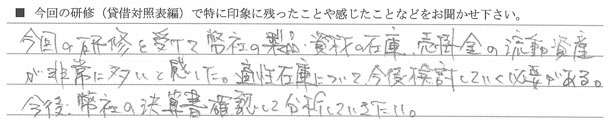 ■ 今回の研修(貸借対照表編)で特に印象に残ったことや感じたことなどをお聞かせ下さい。
今回の研修を受けて弊社の製品、資材の在庫、売掛金の流動資産
が非常に多いと感じた。適性在庫について、今後検討していく必要がある。
今後、弊社の決算書確認して分析していきたい。